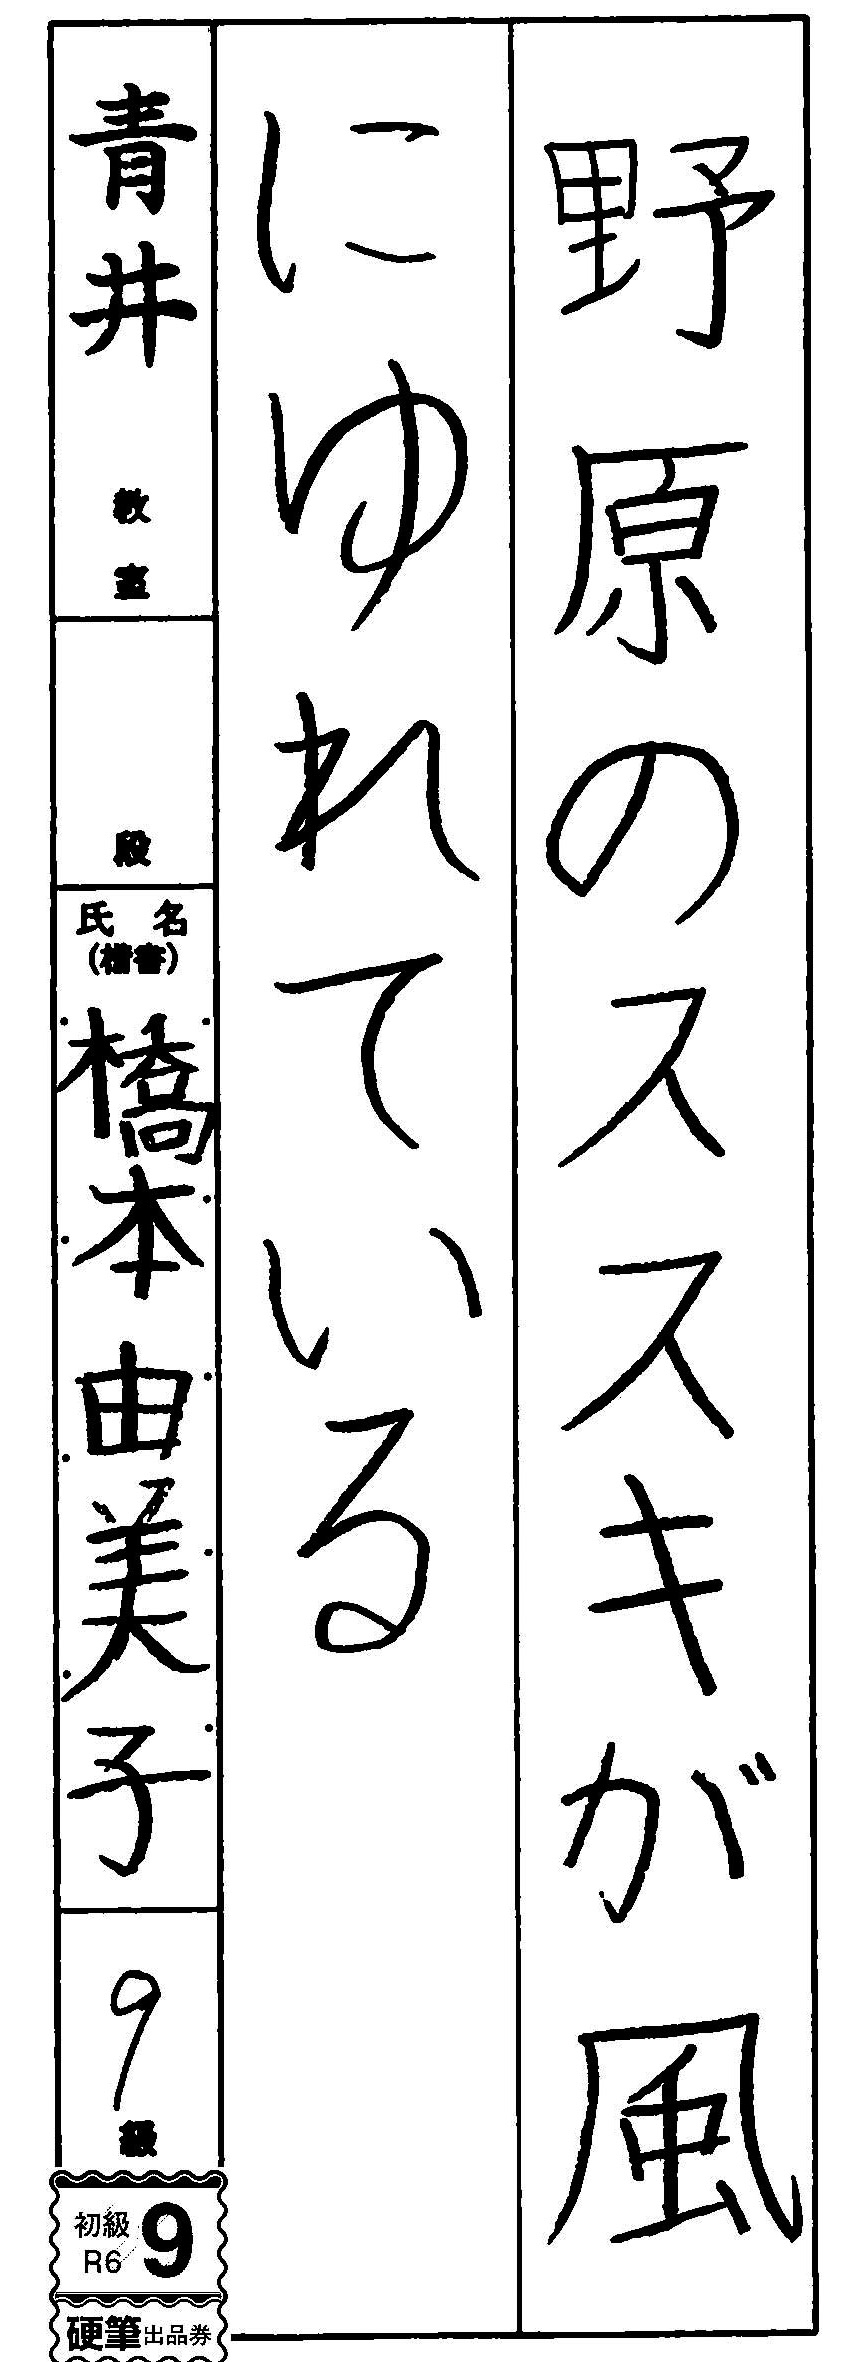 野原のススキが風
にゆれている
青井 教室
段
氏名
(楷書)
橋本由美子
9級
初級
R6
9
硬筆出品券